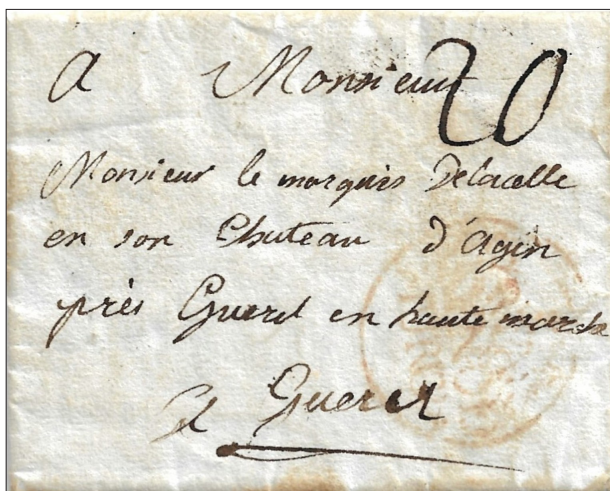 a Monsieur 20
Monsieur le marquis Delacelle
en son Chateau d'agin
près Gueret en haute marche
a Gueret